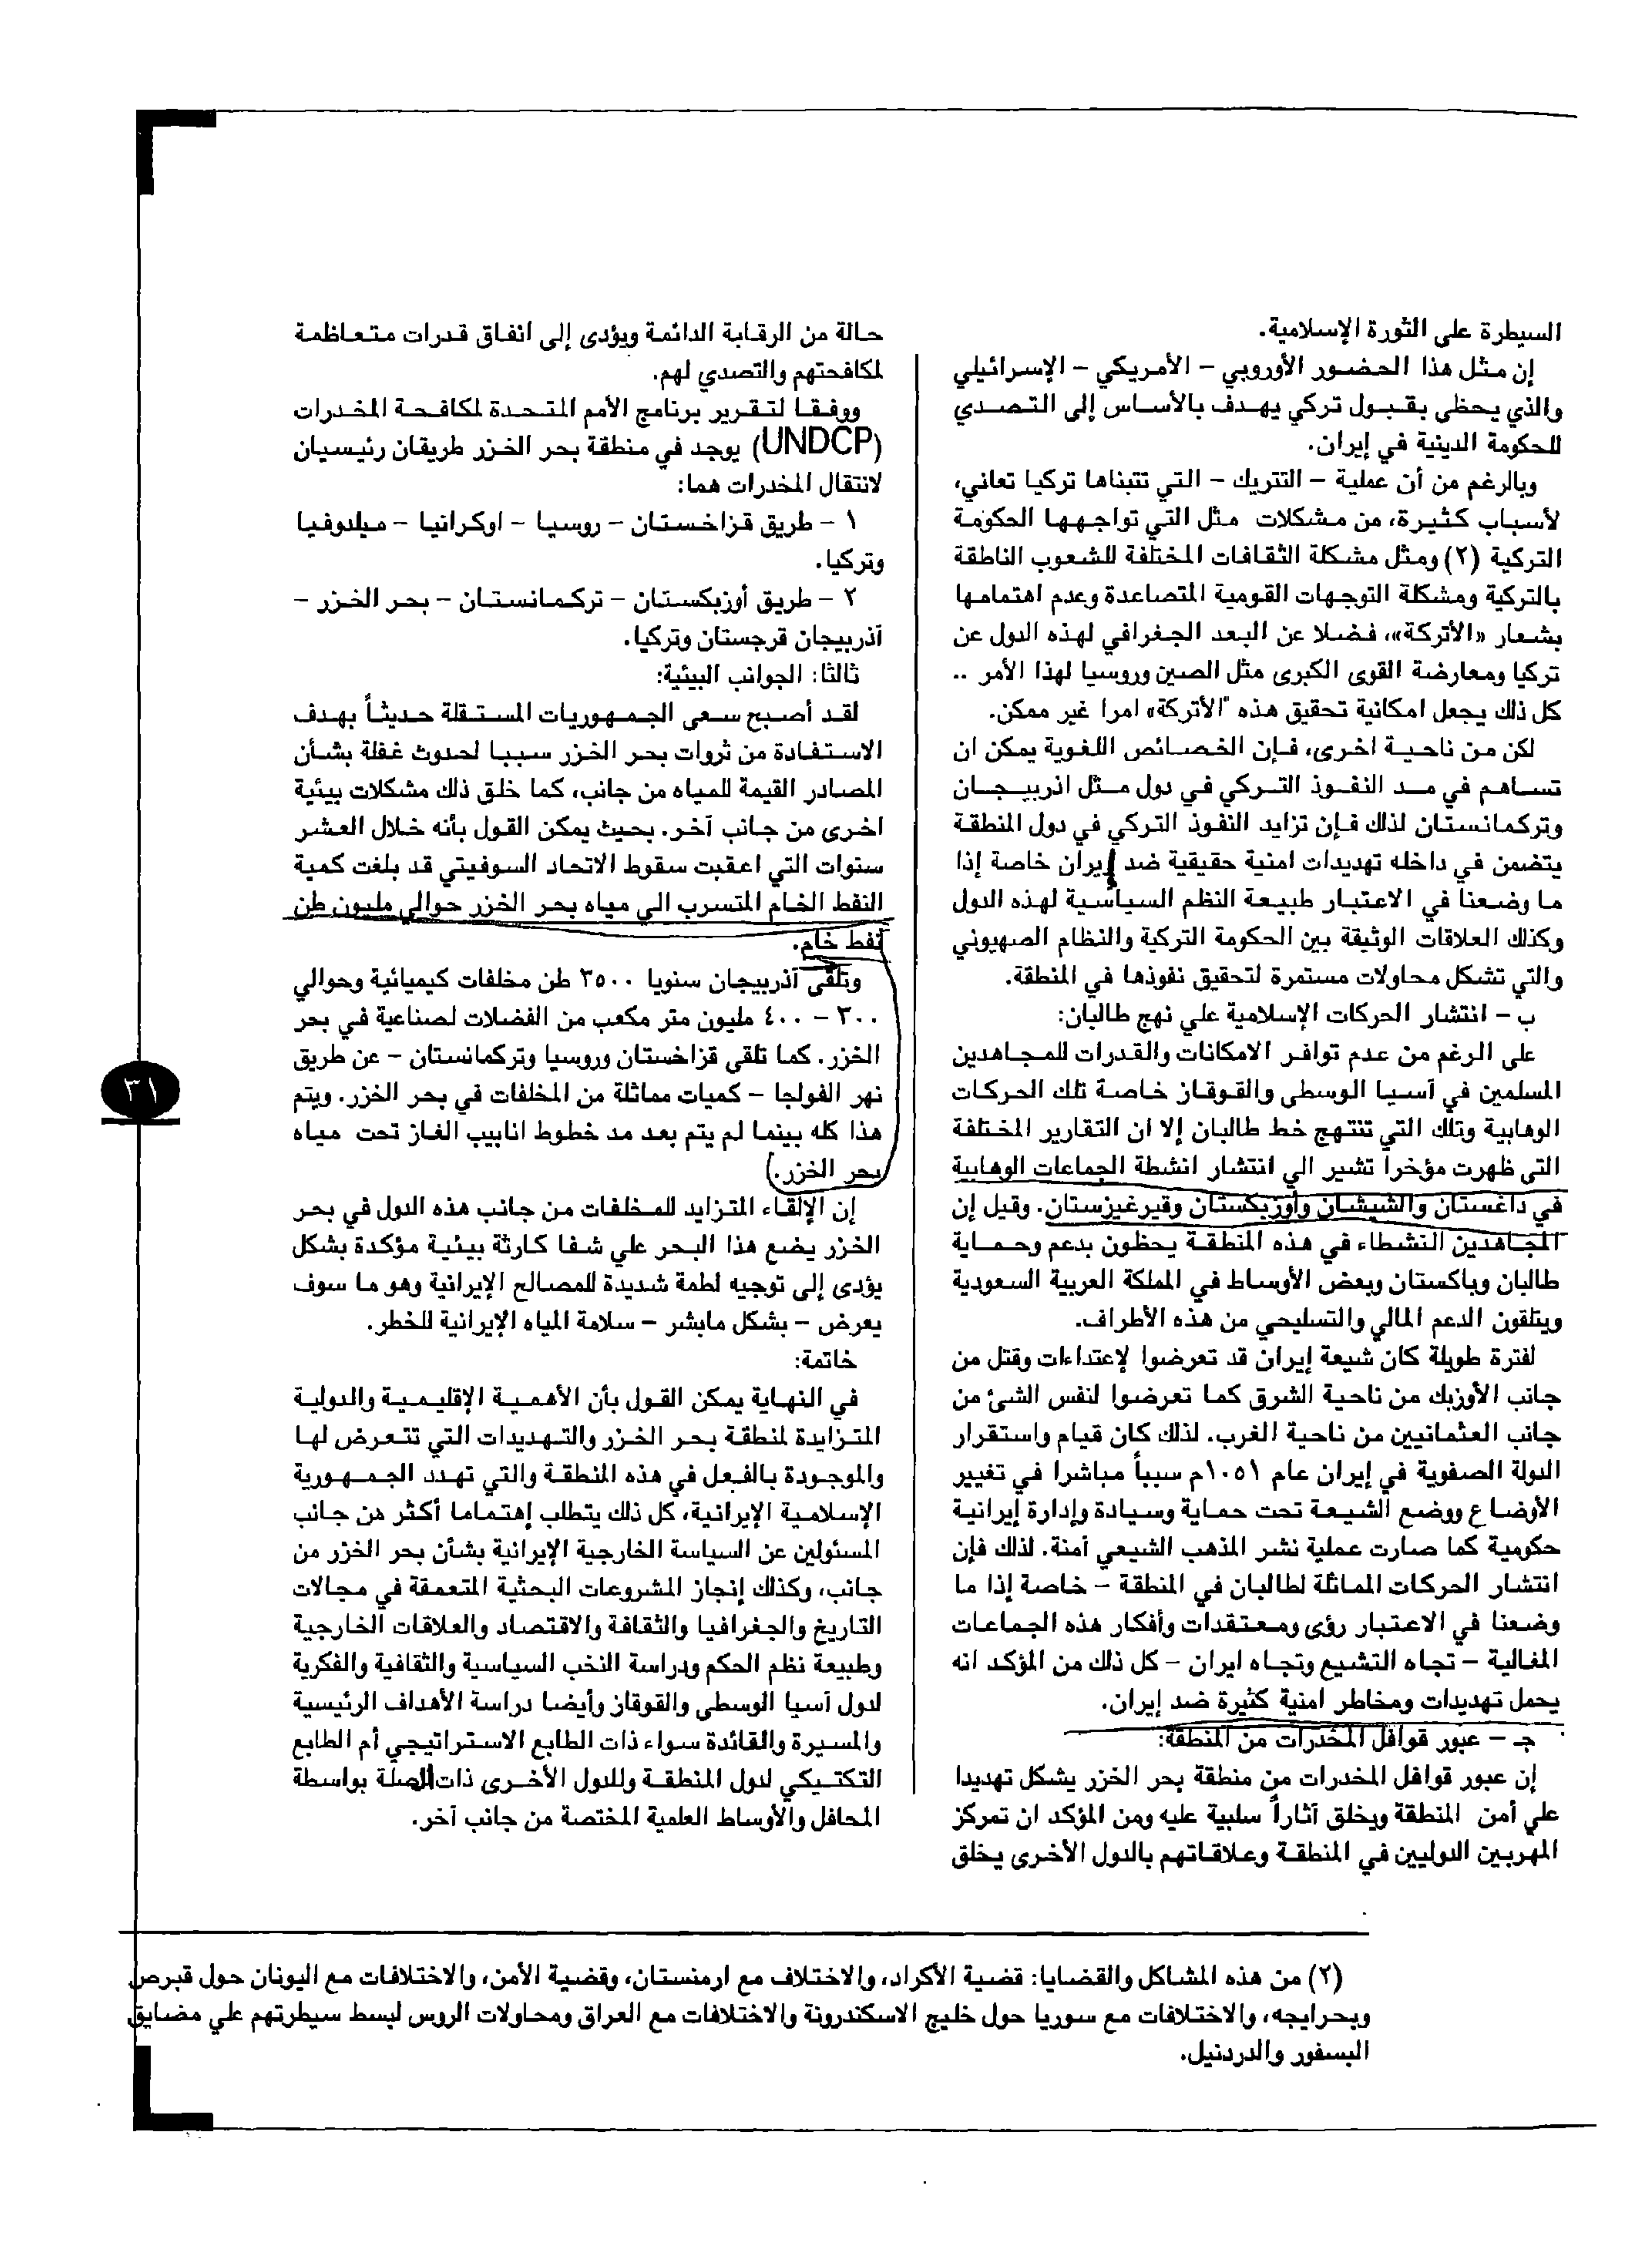 السيطرة على الثورة الإسلامية.
إن مثل هذا الحضور الأوروبي - الأمريكي - الإسرائيلي
والذي يحظى بقبول تركي يهدف بالأساس إلى التصدي
للحكومة الدينية في إيران.
وبالرغم من أن عملية - التتريك - التي تتبناها تركيا تعاني،
لأسباب كثيرة، من مشكلات مثل التي تواجهها الحكومة
التركية (٢) ومثل مشكلة الثقافات المختلفة للشعوب الناطقة
بالتركية ومشكلة التوجهات القومية المتصاعدة وعدم اهتمامها
بشعار «الأتركة»، فضلا عن البعد الجغرافي لهذه الدول عن
تركيا ومعارضة القوى الكبرى مثل الصين وروسيا لهذا الأمر ..
كل ذلك يجعل امكانية تحقيق هذه "الأتركة» امرا غير ممكن.
لكن من ناحية اخرى، فإن الخصائص اللغوية يمكن ان
تساهم في مد النفوذ التركي في دول مثل اذربيجان
وتركمانستان لذلك فإن تزايد النفوذ التركي في دول المنطقة
يتضمن في داخله تهديدات امنية حقيقية ضد إيران خاصة إذا
ما وضعنا في الاعتبار طبيعة النظم السياسية لهذه الدول
وكذلك العلاقات الوثيقة بين الحكومة التركية والنظام الصهيوني
والتي تشكل محاولات مستمرة لتحقيق نفوذها في المنطقة.
ب - انتشار الحركات الإسلامية علي نهج طالبان:
على الرغم من عدم توافر الامكانات والقدرات للمجاهدين
المسلمين في آسيا الوسطى والقوقاز خاصة تلك الحركات
الوهابية وتلك التي تنتهج خط طالبان إلا ان التقارير المختلفة
التى ظهرت مؤخراً تشير الي انتشار انشطة الجماعات الوهابية
في داغستان والشيشان وأوزبكستان وقيرغيزستان. وقيل إن
المجاهدين النشطاء في هذه المنطقة يحظون بدعم وحماية
طالبان وباكستان وبعض الأوساط في المملكة العربية السعودية
ويتلقون الدعم المالي والتسليحي من هذه الأطراف.
لفترة طويلة كان شيعة إيران قد تعرضوا لإعتداءات وقتل من
جانب الأوزبك من ناحية الشرق كما تعرضوا لنفس الشئ من
جانب العثمانيين من ناحية الغرب. لذلك كان قيام واستقرار
الدولة الصفوية في إيران عام ١٠٥١م سبباً مباشرا في تغيير
الأوضاع ووضع الشيعة تحت حماية وسيادة وإدارة إيرانية
حكومية كما صارت عملية نشر المذهب الشيعي آمنة. لذلك فإن
انتشار الحركات المماثلة لطالبان في المنطقة - خاصة إذا ما
وضعنا في الاعتبار رؤى ومعتقدات وأفكار هذه الجماعات
المغالية - تجاه التشيع وتجاه ايران - كل ذلك من المؤكد انه
يحمل تهديدات ومخاطر امنية كثيرة ضد إيران.
جـ - عبور قوافل المخدرات من المنطقة:
إن عبور قوافل المخدرات من منطقة بحر الخزر يشكل تهديدا
علي أمن المنطقة ويخلق آثاراً سلبية عليه ومن المؤكد ان تمركز
المهربين الدوليين في المنطقة وعلاقاتهم بالدول الأخرى يخلق
حالة من الرقابة الدائمة ويؤدى إلى انفاق قدرات متعاظمة
لمكافحتهم والتصدي لهم.
ووفقا لتقرير برنامج الأمم المتحدة لمكافحة المخدرات
(UNDCP) يوجد في منطقة بحر الخزر طريقان رئيسيان
لانتقال المخدرات هما:
١ - طريق قزاخستان - روسيا - اوكرانيا - ميلدوفيا
وتركيا.
٢ - طريق أوزبكستان - تركمانستان - بحر الخزر -
آذربيجان قرجستان وتركيا.
ثالثا: الجوانب البيئية:
لقد أصبح سعى الجمهوريات المستقلة حديثاً بهدف
الاستفادة من ثروات بحر الخزر سببا لحدوث غفلة بشأن
المصادر القيمة للمياه من جانب، كما خلق ذلك مشكلات بيئية
اخرى من جانب آخر. بحيث يمكن القول بأنه خلال العشر
سنوات التي اعقبت سقوط الاتحاد السوفيتي قد بلغت كمية
النفط الخام المتسرب الي مياه بحر الخزر حوالي مليون طن
نفط خام.
وتلقى آذربيجان سنويا ٣٥٠٠ طن مخلفات كيميائية وحوالي
٣٠٠ - ٤٠٠ مليون متر مكعب من الفضلات لصناعية في بحر
الخزر. كما تلقي قزاخستان وروسيا وتركمانستان - عن طريق
نهر الفولجا - كميات مماثلة من المخلفات في بحر الخزر. ويتم
هذا كله بينما لم يتم بعد مد خطوط انابيب الغاز تحت مياه
بحر الخزر.
إن الإلقاء المتزايد للمخلفات من جانب هذه الدول في بحر
الخزر يضع هذا البحر علي شفا كارثة بيئية مؤكدة بشكل
يؤدى إلى توجيه لطمة شديدة للمصالح الإيرانية وهو ما سوف
يعرض - بشكل مابشر - سلامة المياه الإيرانية للخطر.
خاتمة:
في النهاية يمكن القول بأن الأهمية الإقليمية والدولية
المتزايدة لمنطقة بحر الخزر والتهديدات التي تتعرض لها
والموجودة بالفعل في هذه المنطقة والتي تهدد الجمهورية
الإسلامية الإيرانية، كل ذلك يتطلب إهتماما أكثر من جانب
المسئولين عن السياسة الخارجية الإيرانية بشأن بحر الخزر من
جانب، وكذلك إنجاز المشروعات البحثية المتعمقة في مجالات
التاريخ والجغرافيا والثقافة والاقتصاد والعلاقات الخارجية
وطبيعة نظم الحكم ودراسة النخب السياسية والثقافية والفكرية
لدول آسيا الوسطي والقوقاز وأيضا دراسة الأهداف الرئيسية
والمسيرة والقائدة سواء ذات الطابع الاستراتيجي أم الطابع
التكتيكي لدول المنطقة وللدول الأخرى ذات الصلة بواسطة
المحافل والأوساط العلمية المختصة من جانب آخر.
٣١
(٢) من هذه المشاكل والقضايا: قضية الأكراد، والاختلاف مع ارمنستان، وقضية الأمن، والاختلافات مع اليونان حول قبرص
وبحرايجه، والاختلافات مع سوريا حول خليج الاسكندرونة والاختلافات مع العراق ومحاولات الروس لبسط سيطرتهم علي مضايق
البسفور والدردنيل.